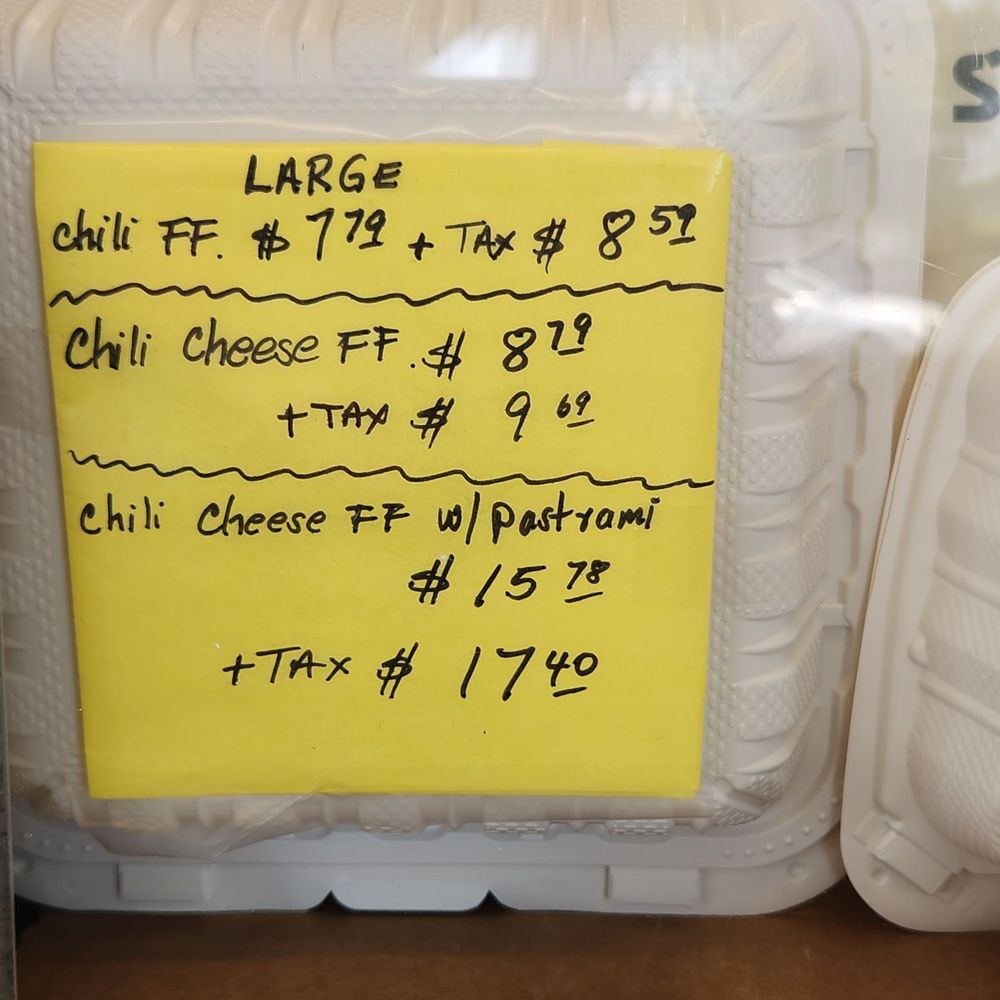 LARGE
chili FF. $ 7 79 + TAX $ 8 59
Chili Cheese FF. $ 8 79
+ TAX $ 9 69
Chili Cheese FF w/ pastrami
$ 15 78
+ TAX $ 17 40